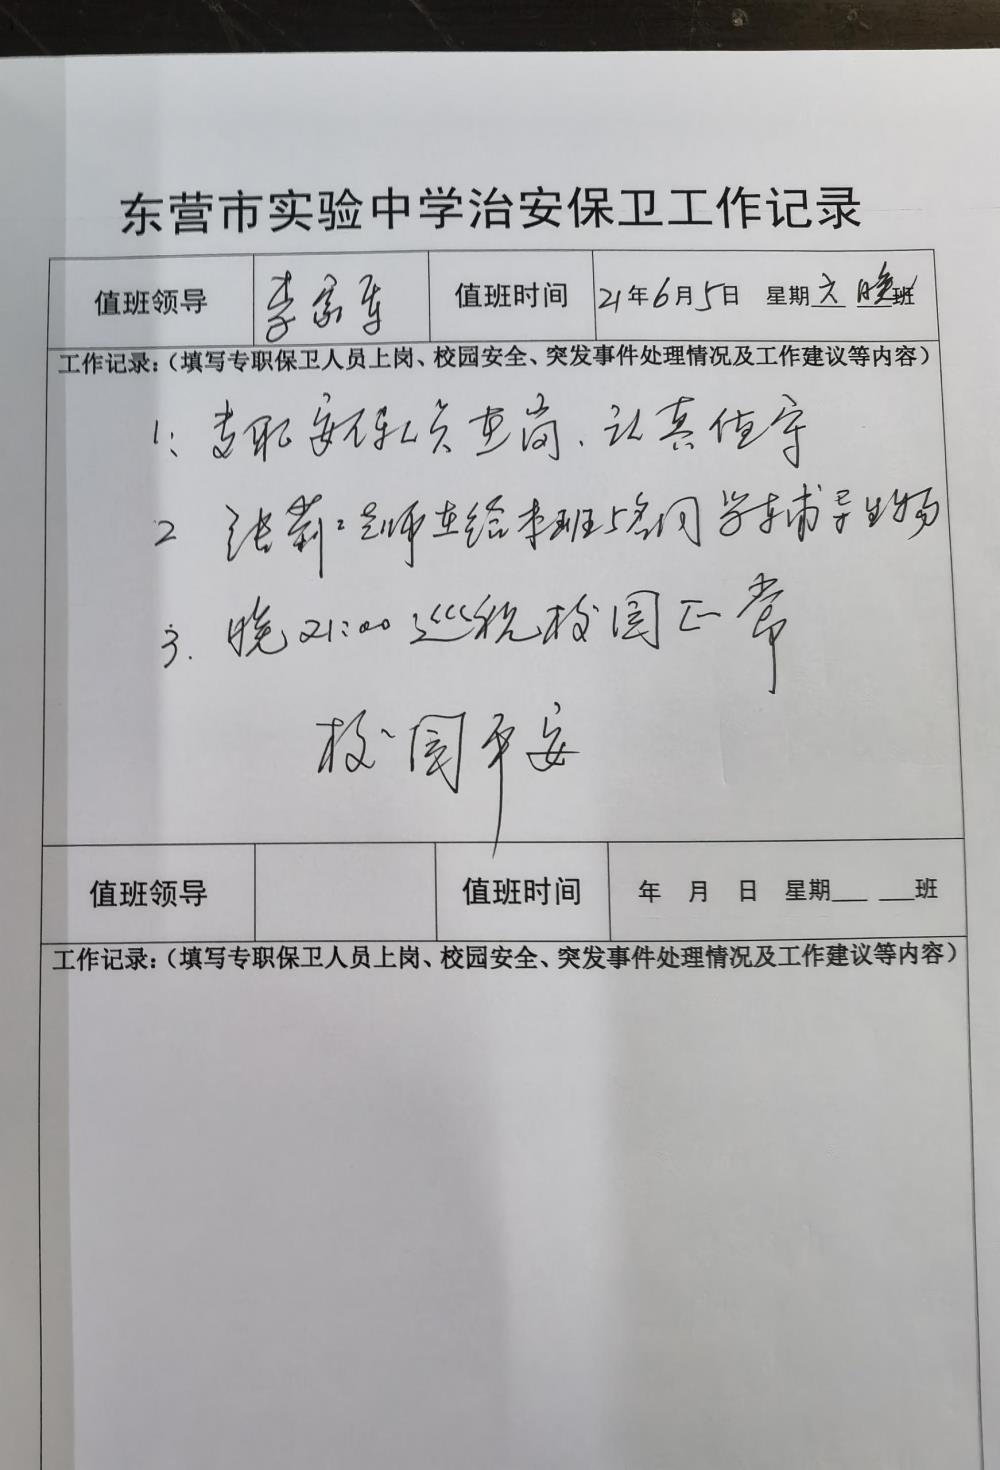 东营市实验中学治安保卫工作记录
值班领导 李家军 值班时间 21年6月5日 星期六 晚班
工作记录:(填写专职保卫人员上岗、校园安全、突发事件处理情况及工作建议等内容)
1: 专职安保人员在岗、认真值守
2 张莉二老师在给本班5名同学辅导生物
3. 晚21:00巡视校园正常
校园平安
值班领导 值班时间 年 月 日 星期___ ___班
工作记录:(填写专职保卫人员上岗、校园安全、突发事件处理情况及工作建议等内容)